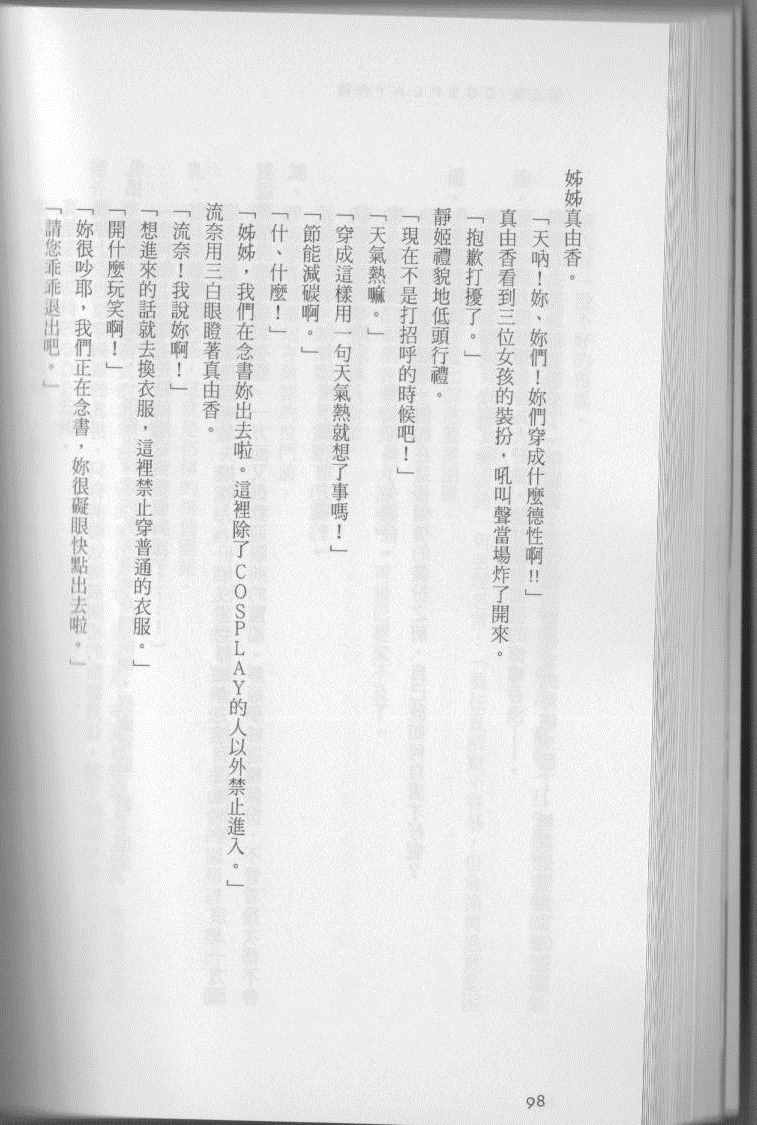 姊姊真由香。
「天吶！妳、妳們！妳們穿成什麼德性啊!!」
真由香看到三位女孩的裝扮，吼叫聲當場炸了開來。
「抱歉打擾了。」
靜姬禮貌地低頭行禮。
「現在不是打招呼的時候吧！」
「天氣熱嘛。」
「穿成這樣用一句天氣熱就想了事嗎！」
「節能減碳啊。」
「什、什麼！」
「姊姊，我們在念書妳出去啦。這裡除了COSPLAY的人以外禁止進入。」
流奈用三白眼瞪著真由香。
「流奈！我說妳啊！」
「想進來的話就去換衣服，這裡禁止穿普通的衣服。」
「開什麼玩笑啊！」
「妳很吵耶，我們正在念書，妳很礙眼快點出去啦。」
「請您乖乖退出吧。」
98